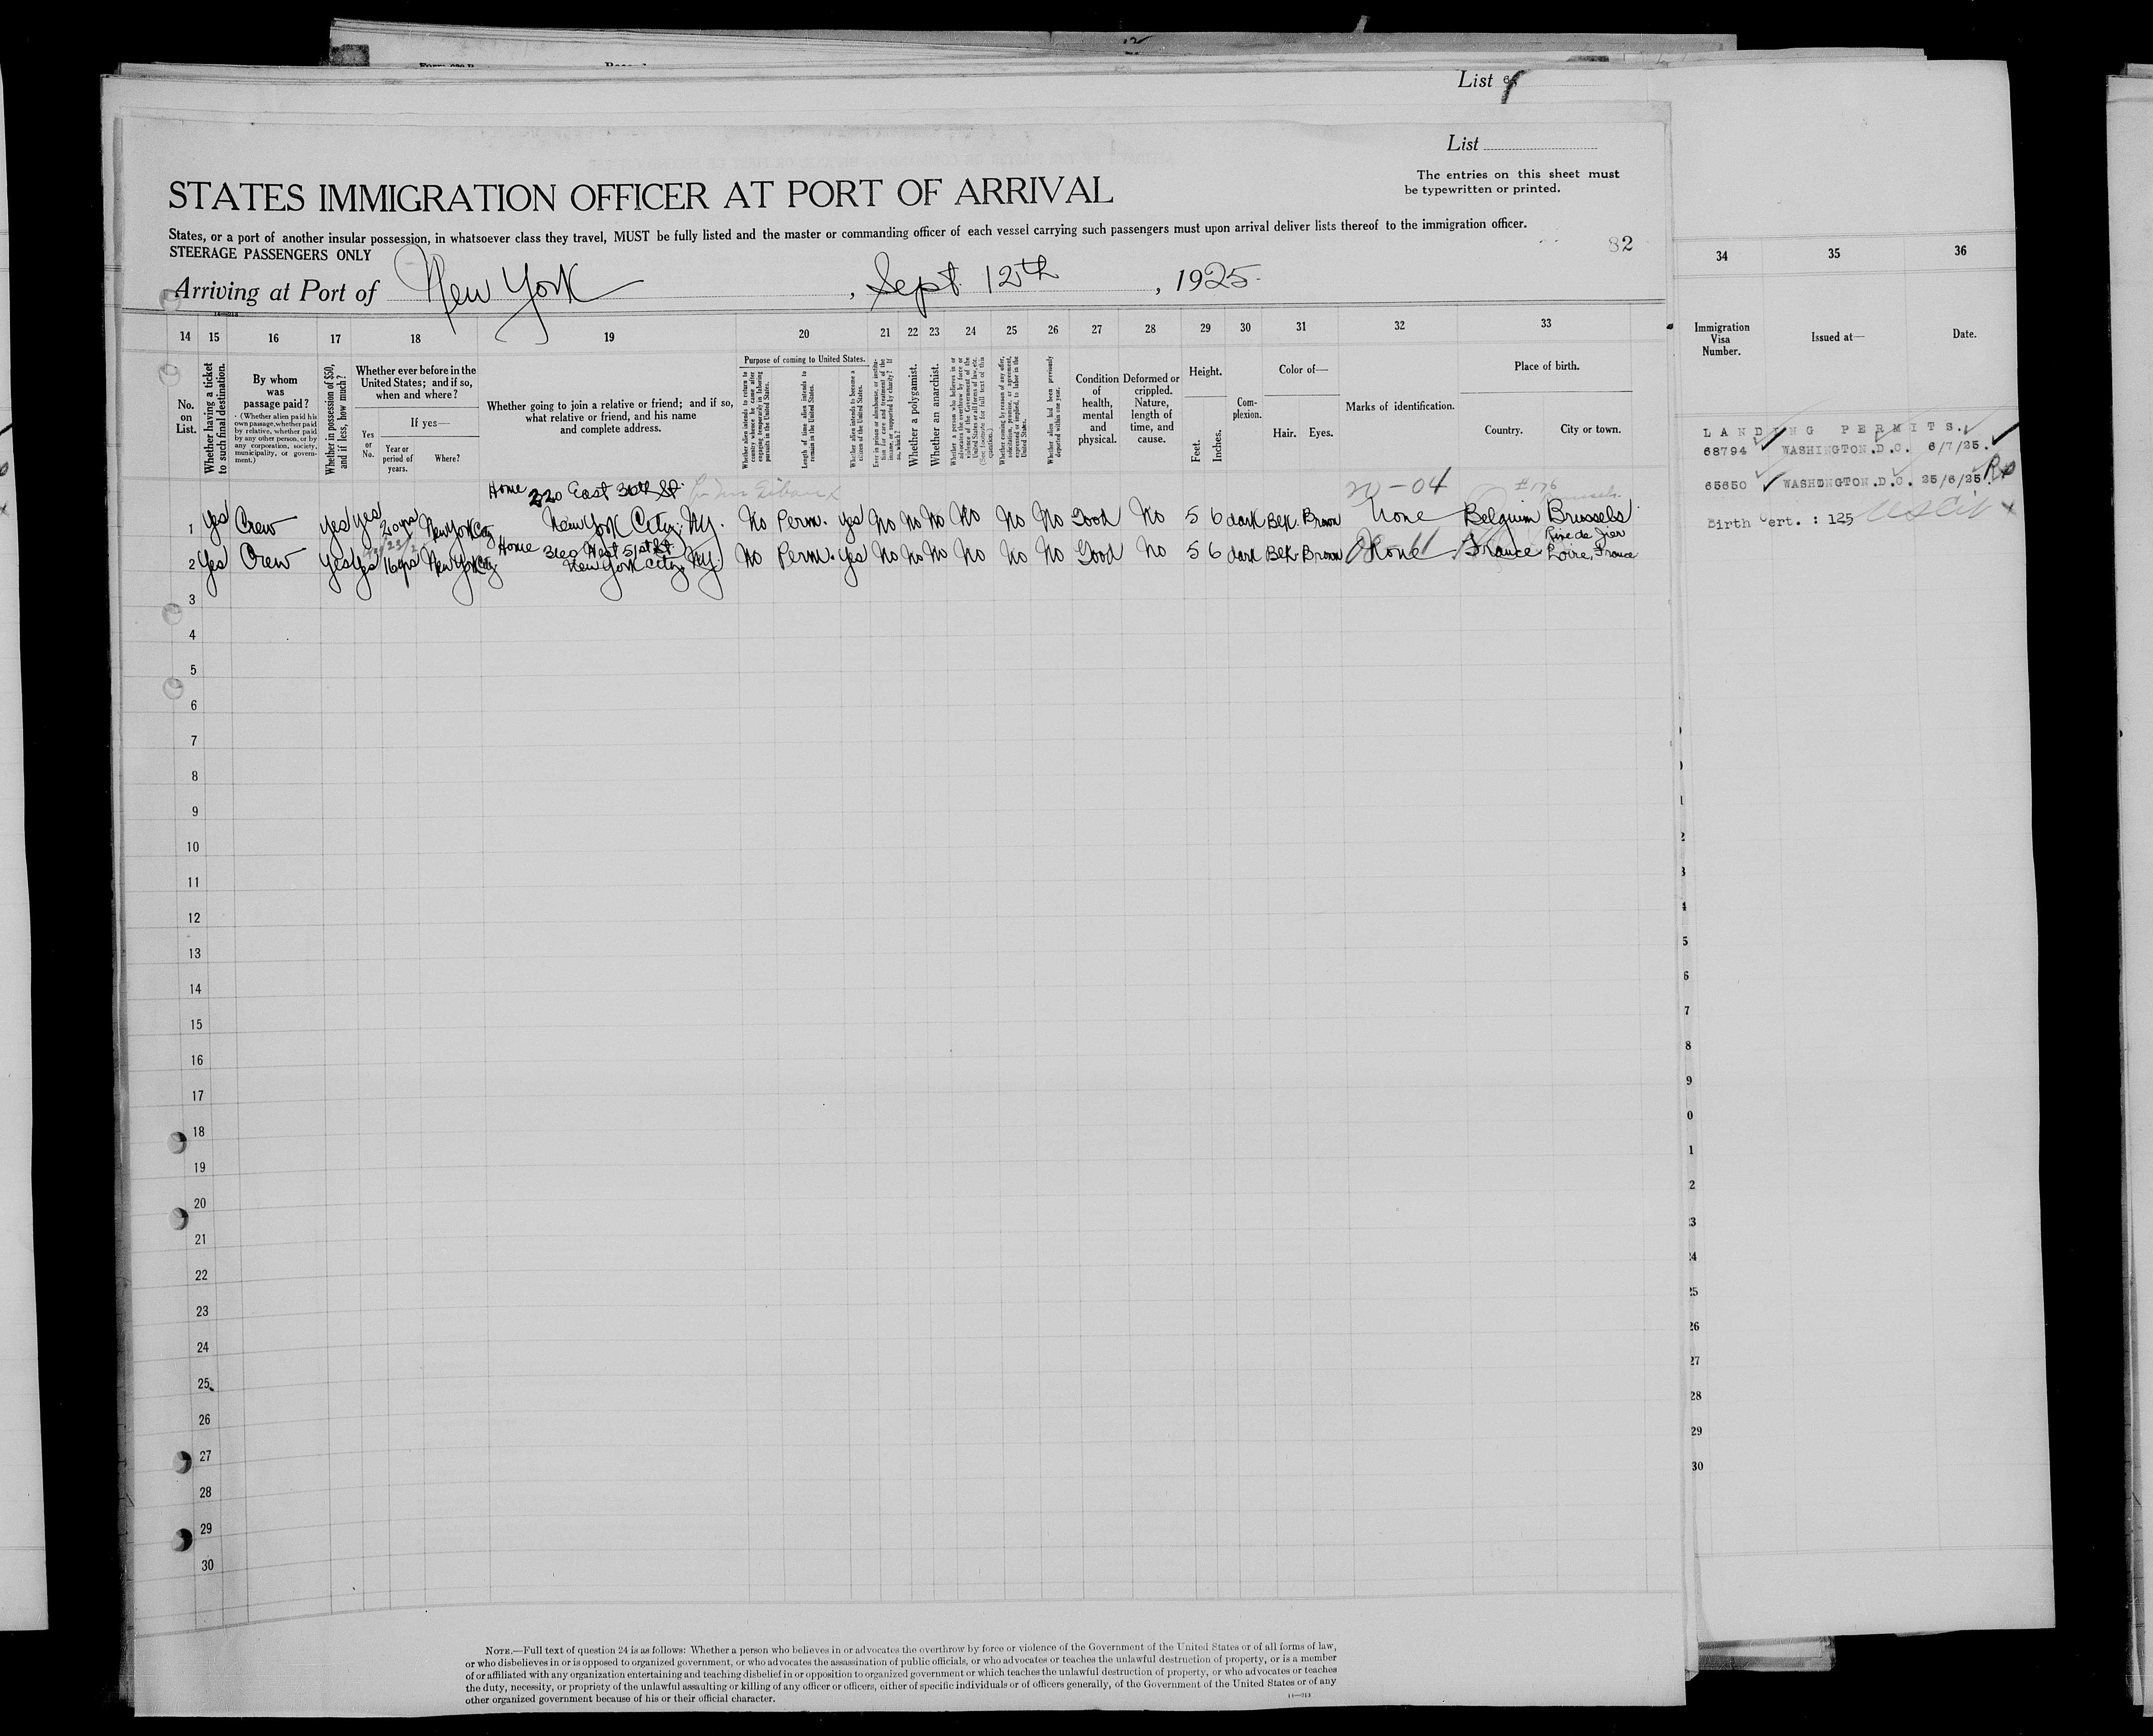 List
List
The entries on this sheet must
be typewritten or printed.
STATES IMMIGRATION OFFICER AT PORT OF ARRIVAL
States, or a port of another insular possession, in whatsoever class they travel, MUST be fully listed and the master or commanding officer of each vessel carrying such passengers must upon arrival deliver lists thereof to the immigration officer.
STEERAGE PASSENGERS ONLY
82
Arriving at Port of New York, Sept. 12th, 1925
14 15 16 17 18 19 20 21 22 23 24 25 26 27 28 29 30 31 32 33 34 35 36
No. on List.
Whether having a ticket to such final destination.
By whom was passage paid?
(Whether alien paid his own passage, whether paid by relative, whether paid by any other person, or by any corporation, society, municipality, or government.)
Whether in possession of $50, and if less, how much?
Whether ever before in the United States; and if so, when and where?
Yes or No.
If yes—
Year or period of years.
Where?
Whether going to join a relative or friend; and if so, what relative or friend, and his name and complete address.
Purpose of coming to United States.
Whether alien intends to return to country whence he came after engaging temporarily in laboring pursuits in the United States.
Length of time alien intends to remain in the United States.
Whether alien intends to become a citizen of the United States.
Ever in prison or almshouse, or institution for care and treatment of the insane, or supported by charity? If so, which?
Whether a polygamist.
Whether an anarchist.
Whether a person who believes in or advocates the overthrow by force or violence of the Government of the United States or all forms of law, etc. (See footnote for full text of this question.)
Whether coming by reason of any offer, solicitation, promise, or agreement, expressed or implied, to labor in the United States.
Whether alien had been previously deported within one year.
Condition of health, mental and physical.
Deformed or crippled. Nature, length of time, and cause.
Height.
Feet. Inches.
Complexion.
Color of—
Hair. Eyes.
Marks of identification.
Place of birth.
Country. City or town.
Immigration Visa Number.
Issued at—
Date.
LANDING PERMITS.
68794 WASHINGTON.D.C. 6/7/25.
65650 WASHINGTON.D.C. 25/6/25
Birth Cert. : 125
Home 220 East 30th St.
20-04
1 Yes Crew Yes Yes 20 yrs New York City New York City, N.Y. No Perm. Yes No No No No No No Good No 5 6 dark Blk. Brown None Belgium Brussels
Home 360 West 51st St.
Rive de Gier
2 Yes Crew Yes Yes 16 yrs New York City New York City, N.Y. No Perm. Yes No No No No No No Good No 5 6 dark Blk. Brown None France Loire, France
3
4
5
6
7
8
9
10
11
12
13
14
15
16
17
18
19
20
21
22
23
24
25
26
27
28
29
30
NOTE.—Full text of question 24 is as follows: Whether a person who believes in or advocates the overthrow by force or violence of the Government of the United States or of all forms of law,
or who disbelieves in or is opposed to organized government, or who advocates the assassination of public officials, or who advocates or teaches the unlawful destruction of property, or is a member
of or affiliated with any organization entertaining and teaching disbelief in or opposition to organized government or which teaches the unlawful destruction of property, or who advocates or teaches
the duty, necessity, or propriety of the unlawful assaulting or killing of any officer or officers, either of specific individuals or of officers generally, of the Government of the United States or of any
other organized government because of his or their official character.